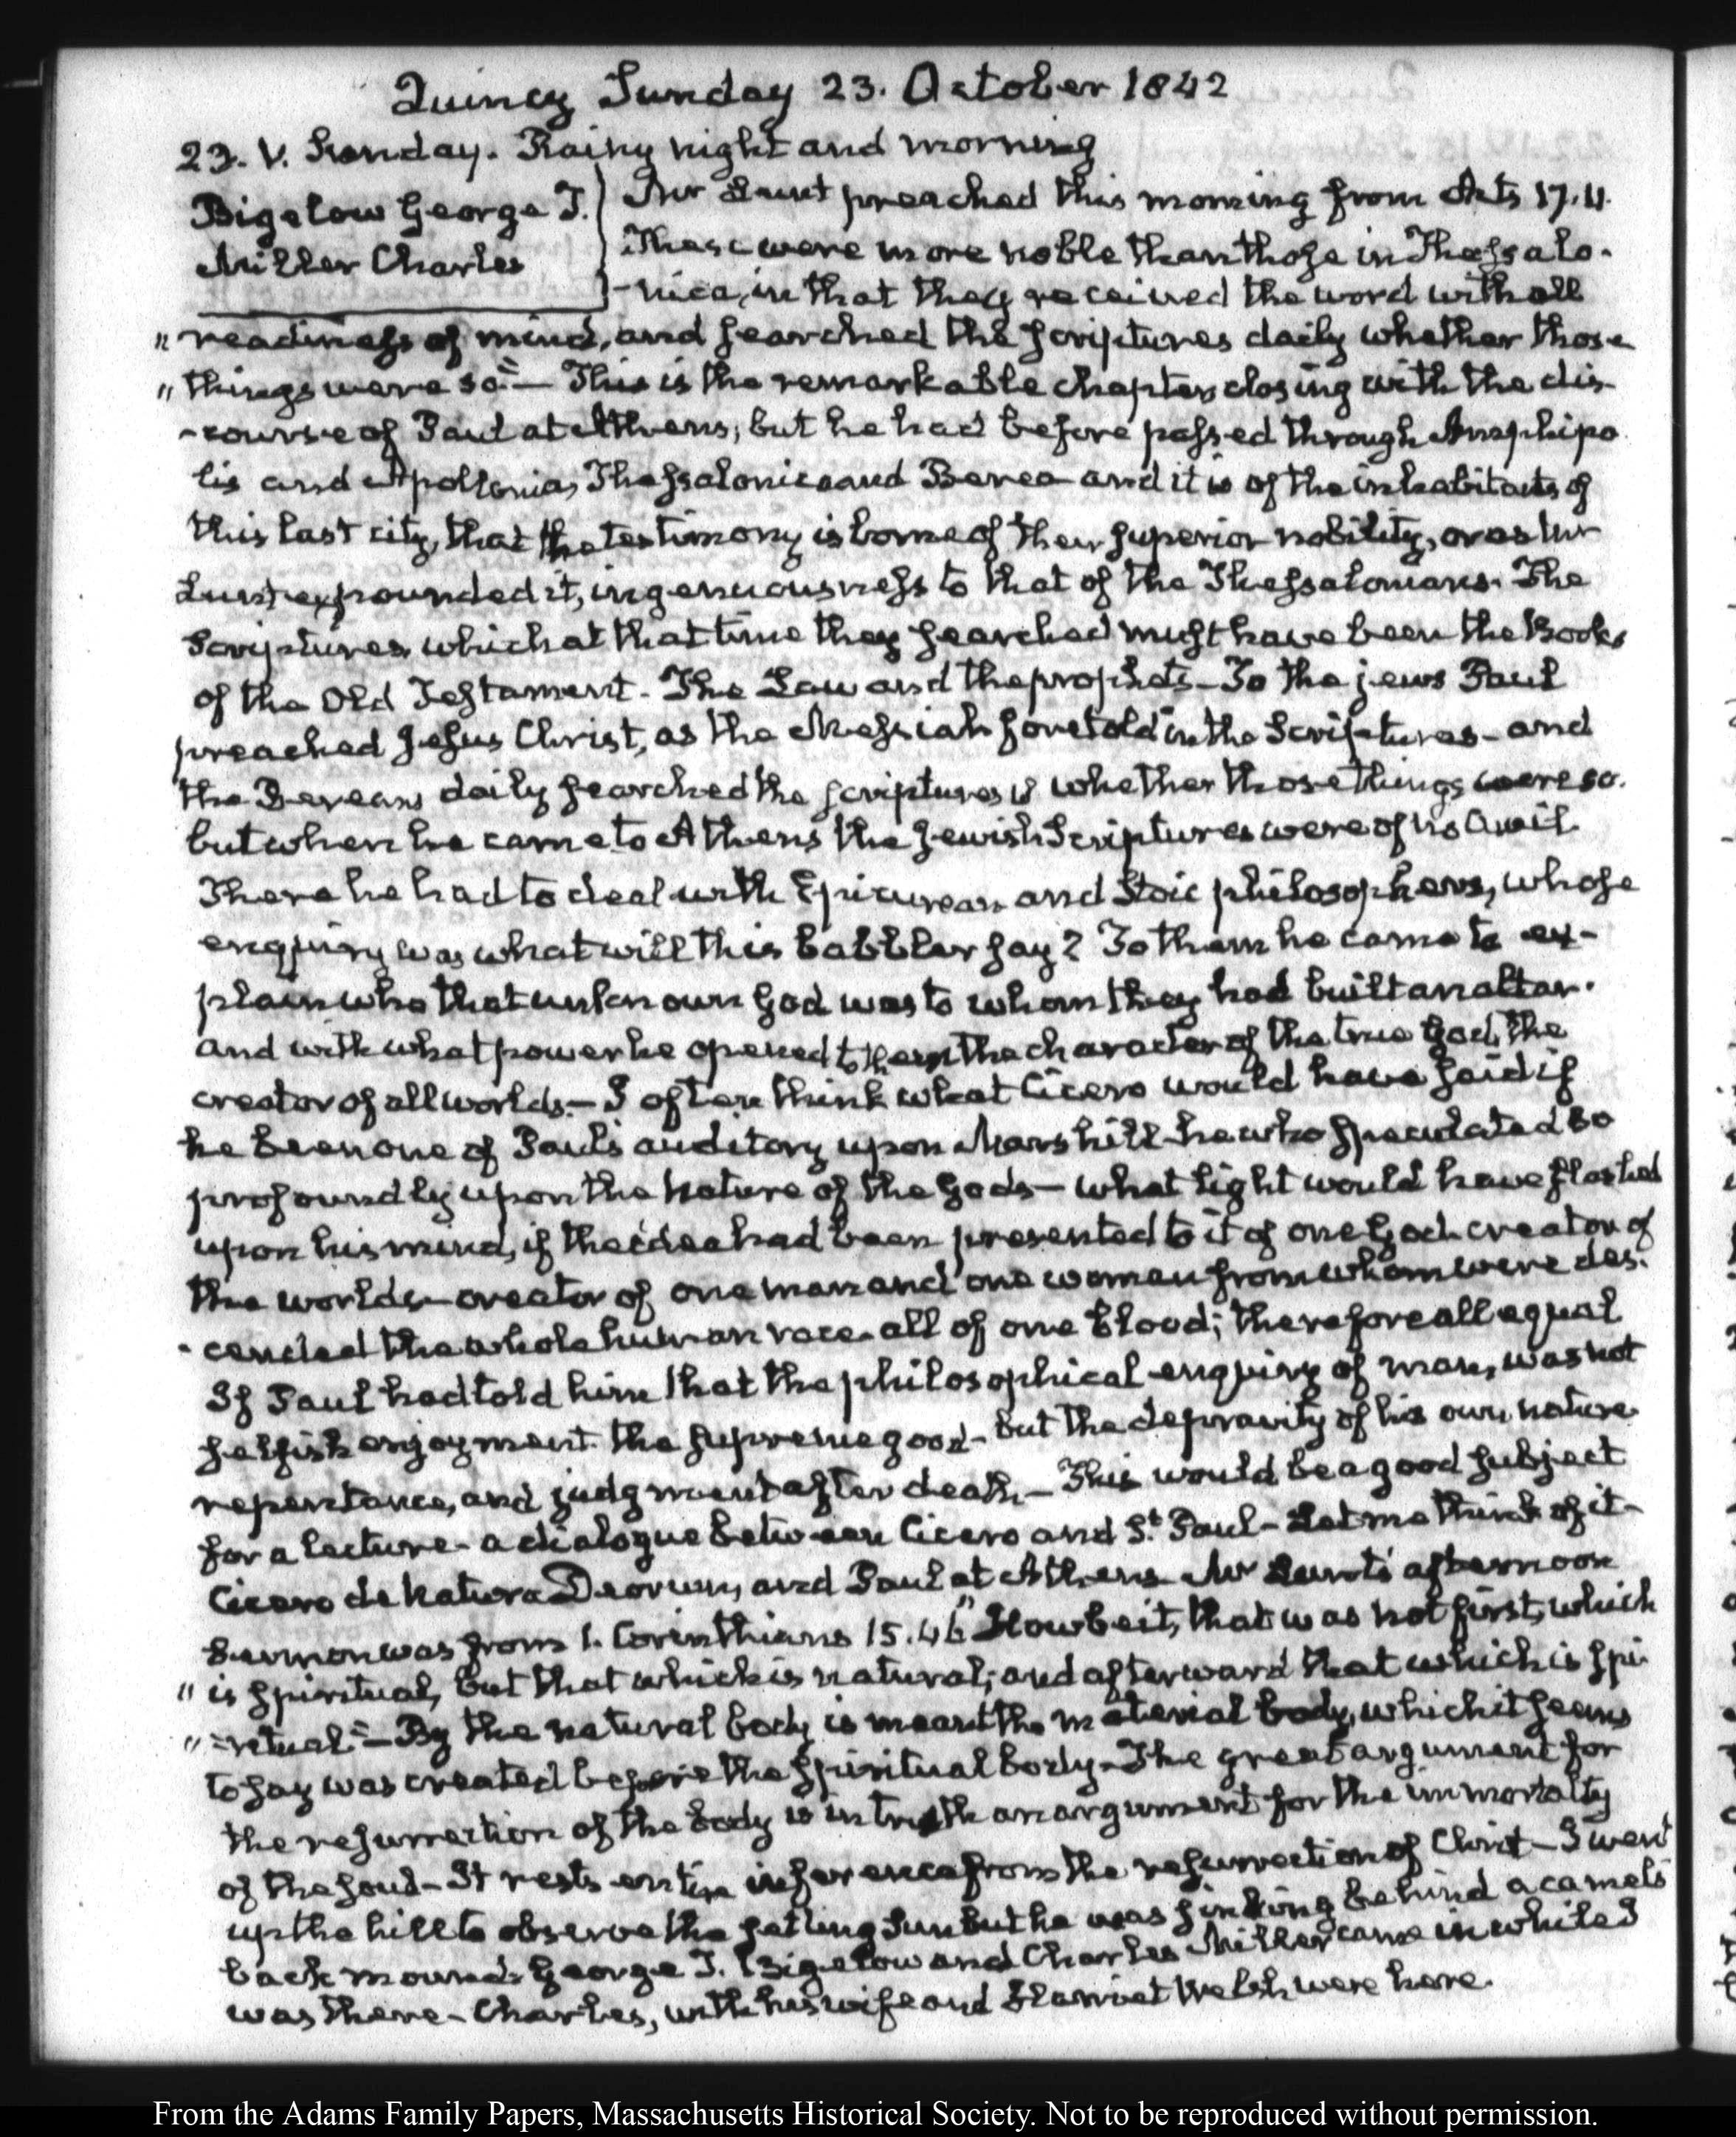 Quincy Sunday 23. October 1842
23. V. Sunday. Rainy night and morning
Bigelow George T.
Miller Charles
Mr Lunt preached this morning from Acts 17.11.
These were more noble than those in Thessalo-
-nica, in that they received the word with all
" readiness of mind, and searched the scriptures daily whether those
" things were so"— This is the remarkable chapter closing with the dis-
-course of Paul at Athens; but he had before passed through Amphipo
lis and Apollonia, Thessalonica and Berea and it is of the inhabitants of
this last city, that the testimony is borne of their superior nobility, or as Mr
Lunt expounded it, ingenuousness to that of the Thessalonians. The
Scriptures which at that time they searched must have been the Books
of the Old Testament - The Law and the prophets - To the jews Paul
preached Jesus Christ, as the Messiah foretold in the Scriptures - and
the Bereans daily searched the scriptures whether those things were so.
but when he came to Athens the Jewish Scriptures were of no avail.
There he had to deal with Epicurean and Stoic philosophers, whose
enquiry was what will this babbler say? To them he came to ex-
plain who that unknown God was to whom they had built an altar.
and with what power he opened to them the character of the true God, the
creator of all worlds.— I often think what Cicero would have said if
he been one of Paul's auditory upon Mars hill - he who speculated so
profoundly upon the Nature of the Gods — what light would have flashed
upon his mind, if the idea had been presented to it of one God creator of
the worlds - creator of one man and one woman from whom were des-
-cended the whole human race - all of one blood; therefore all equal
If Paul had told him that the philosophical enquiry of man, was not
selfish enjoyment the supreme good - but the depravity of his own nature
repentance, and judgment after death — This would be a good subject
for a lecture - a dialogue between Cicero and St. Paul - Let me think of it -
Cicero de Natura Deorum, and Paul at Athens - Mr Lunt's afternoon
Sermon was from 1. Corinthians 15.46 "Howbeit, that was not first, which
" is spiritual, but that which is natural; and afterward that which is spi-
" =ritual"— By the natural body is meant the material body, which it seems
to say was created before the spiritual body - The great argument for
the resurrection of the body is in truth an argument for the immortality
of the soul - It rests inference from the resurrection of Christ — I went
up the hill to observe the setting Sun but he was sinking behind a camels
back mound. George T. Bigelow and Charles Miller came in while I
was there - Charles, with his wife and Harriet Welsh were here.
From the Adams Family Papers, Massachusetts Historical Society. Not to be reproduced without permission.